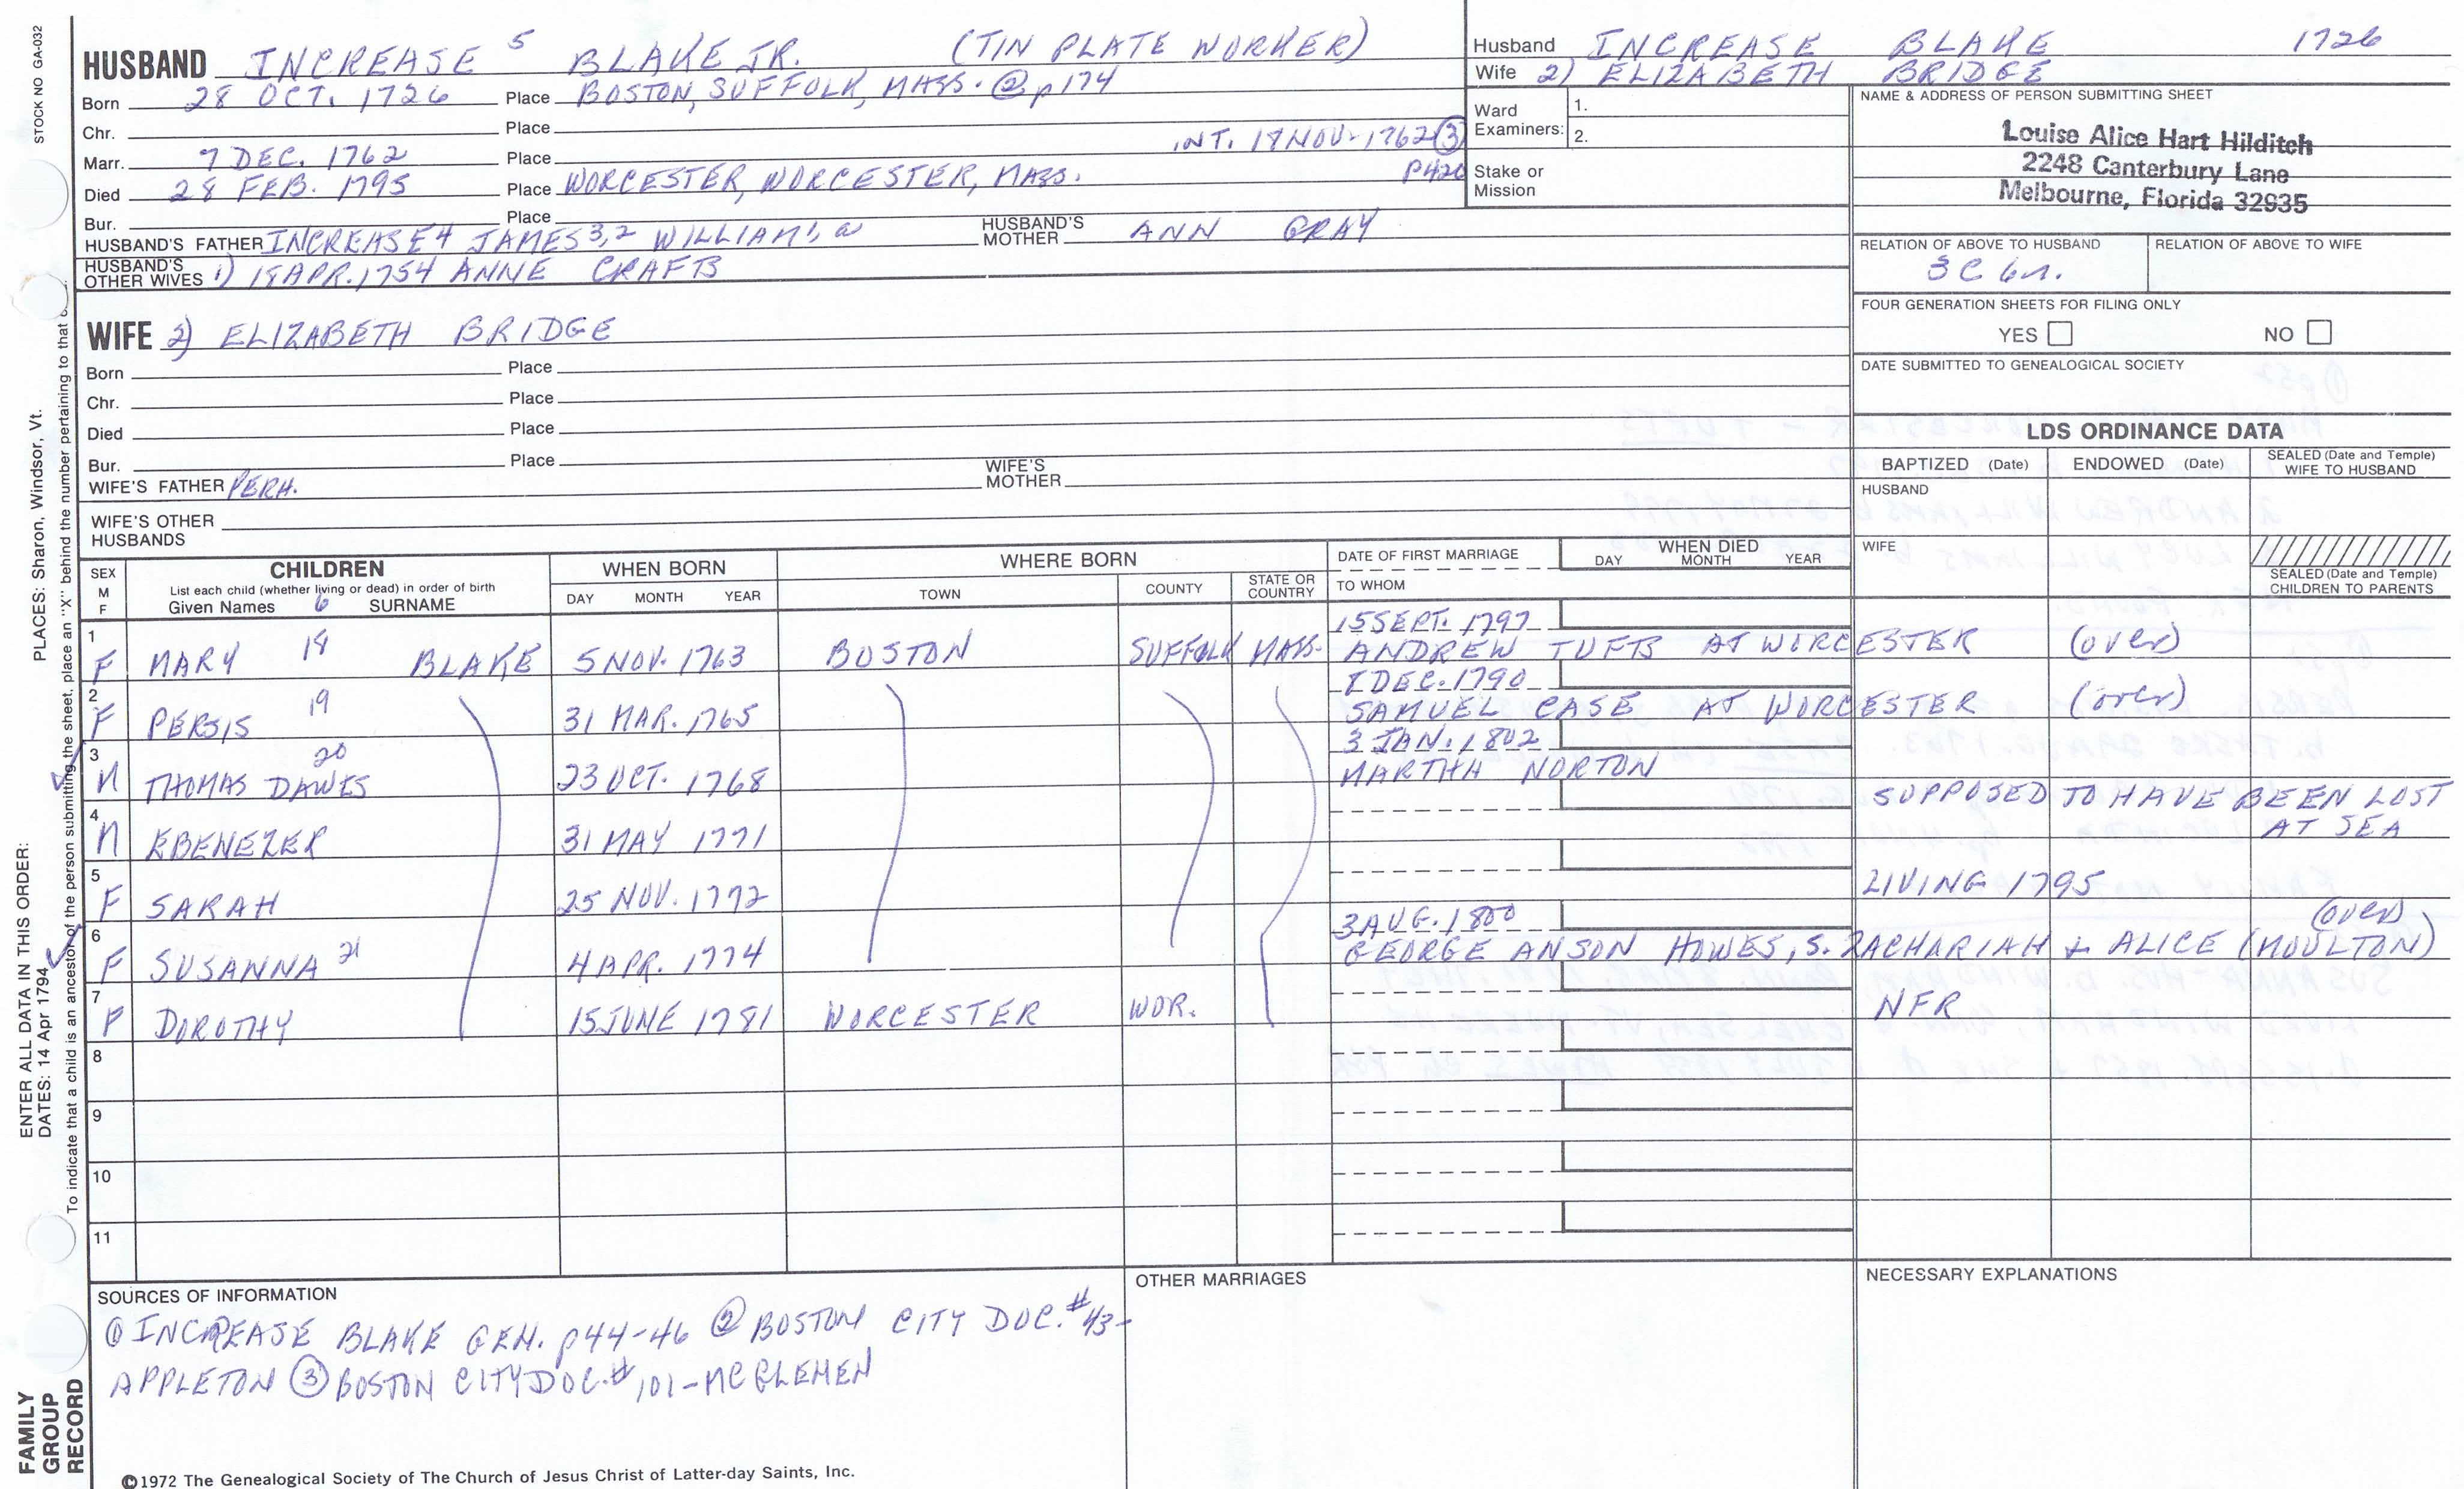 STOCK NO GA-032
HUSBAND INCREASE 5 BLAKE JR. (TIN PLATE WORKER)
Born 28 OCT. 1726 Place BOSTON, SUFFOLK, MASS. @ p174
Chr. Place
INT. 18 NOV. 1762 ③ P420
Marr. 7 DEC. 1762 Place
Died 28 FEB. 1795 Place WORCESTER, WORCESTER, MASS.
Bur. Place
HUSBAND'S FATHER INCREASE 4 JAMES 3,2 WILLIAM 1, a HUSBAND'S MOTHER ANN GRAY
HUSBAND'S OTHER WIVES 1) 18 APR. 1754 ANNE CRAFTS
Husband INCREASE BLAKE 1726
Wife 2) ELIZABETH BRIDGE
Ward Examiners: 1.
2.
Stake or Mission
NAME & ADDRESS OF PERSON SUBMITTING SHEET
Louise Alice Hart Hilditch
2248 Canterbury Lane
Melbourne, Florida 32935
RELATION OF ABOVE TO HUSBAND RELATION OF ABOVE TO WIFE
3 C 6 r.
FOUR GENERATION SHEETS FOR FILING ONLY
YES NO
DATE SUBMITTED TO GENEALOGICAL SOCIETY
WIFE 2) ELIZABETH BRIDGE
Born Place
Chr. Place
Died Place
Bur. Place
WIFE'S FATHER PERH. WIFE'S MOTHER
WIFE'S OTHER HUSBANDS
LDS ORDINANCE DATA
BAPTIZED (Date) ENDOWED (Date) SEALED (Date and Temple) WIFE TO HUSBAND
HUSBAND
WIFE
SEALED (Date and Temple) CHILDREN TO PARENTS
SEX M F CHILDREN List each child (whether living or dead) in order of birth Given Names 6 SURNAME
WHEN BORN DAY MONTH YEAR
WHERE BORN TOWN COUNTY STATE OR COUNTRY
DATE OF FIRST MARRIAGE TO WHOM
WHEN DIED DAY MONTH YEAR
15 SEPT. 1797
1 F MARY 18 BLAKE 5 NOV. 1763 BOSTON SUFFOLK MASS. ANDREW TUFTS AT WORCESTER (over)
7 DEC. 1790
2 F PERSIS 19 31 MAR. 1765 SAMUEL CASE AT WORCESTER (over)
3 JAN. 1802
3 M THOMAS DAWES 20 23 OCT. 1768 MARTHA NORTON
4 M EBENEZER 31 MAY 1771 SUPPOSED TO HAVE BEEN LOST AT SEA
5 F SARAH 25 NOV. 1772 LIVING 1795
3 AUG. 1800 (over)
6 F SUSANNA 21 4 APR. 1774 GEORGE ANSON HOWES, S. ZACHARIAH + ALICE (MOULTON)
7 F DOROTHY 15 JUNE 1781 WORCESTER WOR. NFR
8
9
10
11
SOURCES OF INFORMATION
① INCREASE BLAKE GEN. p44-46 ② BOSTON CITY DOC. #43-
APPLETON ③ BOSTON CITY DOC. #101-MCGLENEN
OTHER MARRIAGES
NECESSARY EXPLANATIONS
©1972 The Genealogical Society of The Church of Jesus Christ of Latter-day Saints, Inc.
FAMILY GROUP RECORD
ENTER ALL DATA IN THIS ORDER:
DATES: 14 Apr 1794
PLACES: Sharon, Windsor, Vt.
To indicate that a child is an ancestor of the person submitting the sheet, place an "X" behind the number pertaining to that